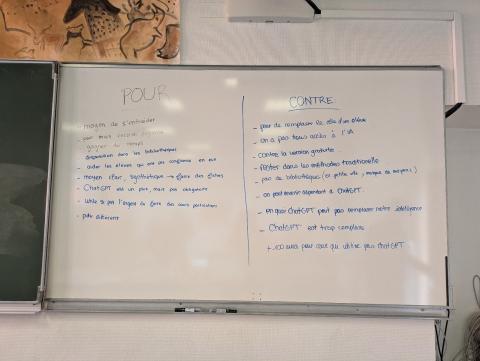 POUR
- moyen de s'entraider
- pour mieux
- gagner du temps
- disposition dans les bibliothèques
- aider les élèves qui ont pas confiance en eux
- moyen clair, synthétique → faire des fiches
- ChatGPT est un plus, mais pas obligatoire
- utile si pas l'argent de faire des cours particuliers
- pdv différent
CONTRE
- peur de remplacer le rôle d'un élève
- on a pas tous accès à l'IA
- contre la version gratuite
- rester dans les méthodes traditionnelle
- pas de bibliothèque (si petite ville, manque de moyens)
- on peut devenir dépendant à ChatGPT
- en quoi ChatGPT peut pas remplacer notre intelligence
- ChatGPT est trop complexe
+ 100 euros pour ceux qui utilise pas ChatGPT